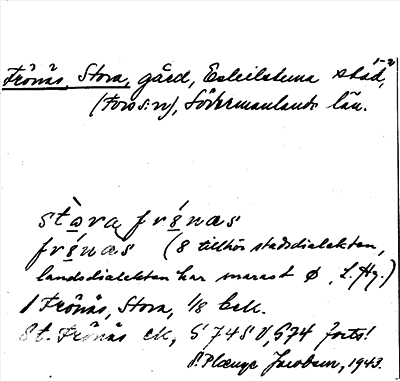 Frönäs, Stora, gård, Eskilstuna stad, 1-2
(Fors sn), Södermanlands län.
stòra frö́næs
frö́næs (ö tillhör stadsdialekten,
landsdialekten har snarast ø, L. Hg.)
1 Frönäs, Stora, 1/8 Esk.
St. Frönäs EK, S 74 S V, S 74 forts!
P. Plænge Jacobson, 1943.